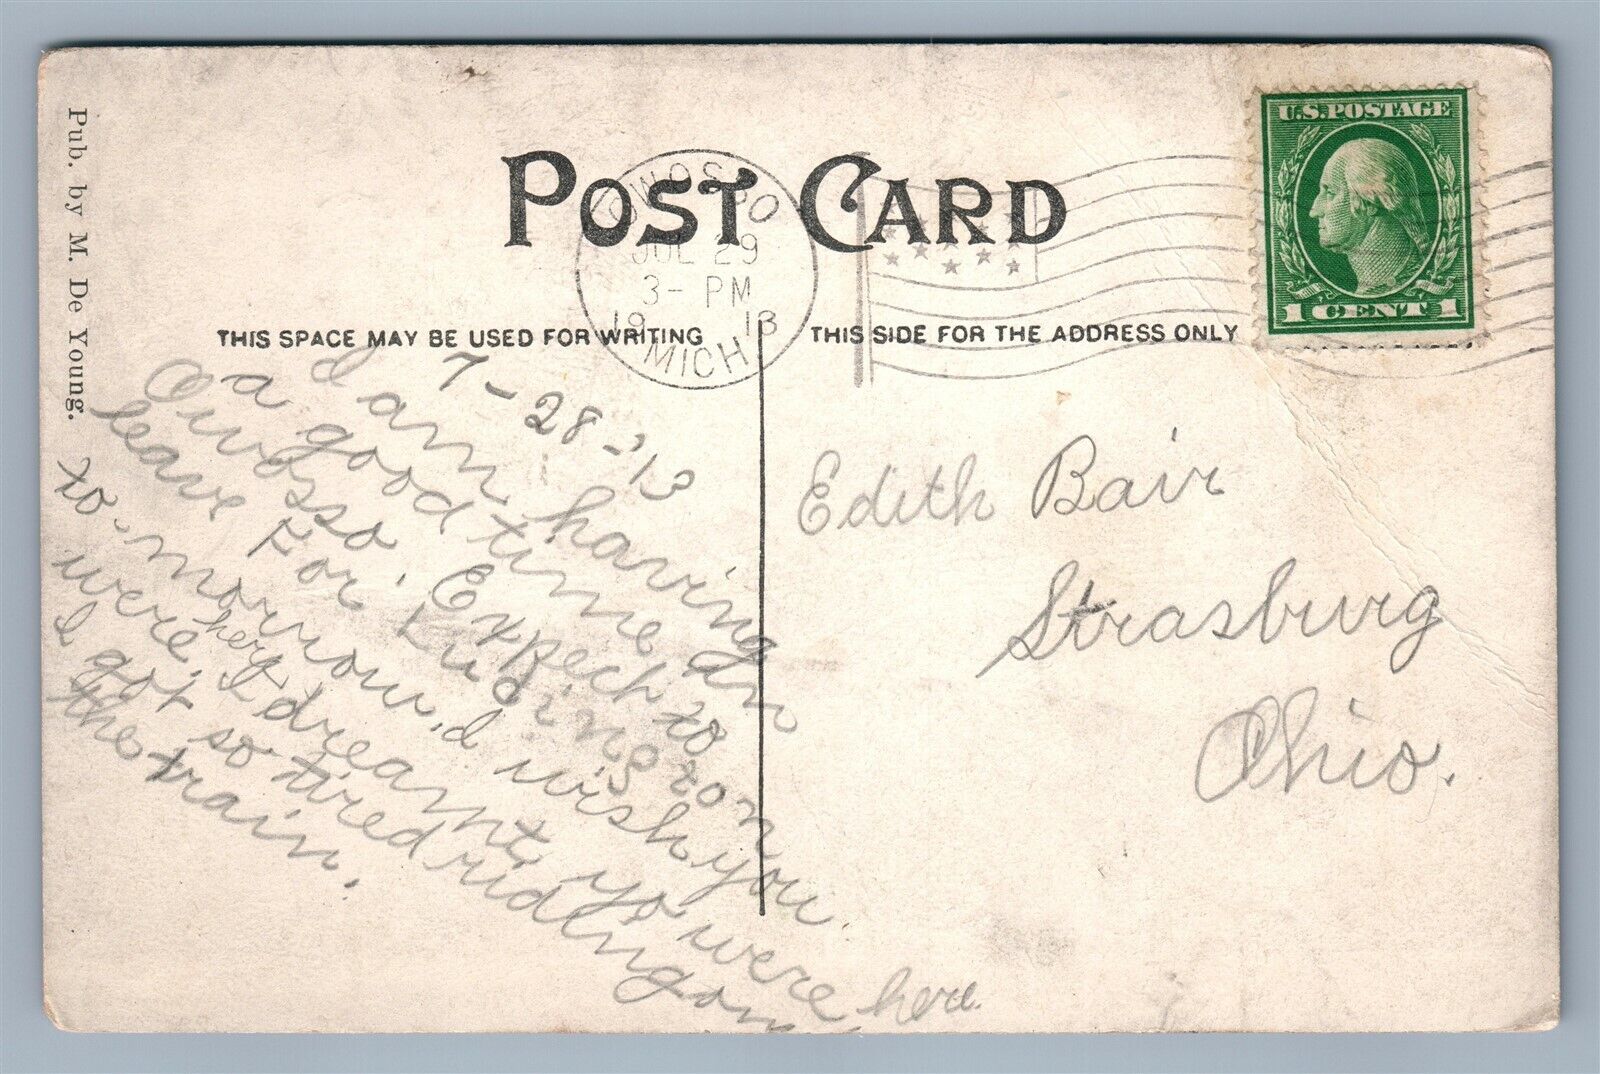 Pub. by M. De Young.
POST CARD
OWOSSO
JUL 29
3- PM
1913
MICH
U.S. POSTAGE
1 CENT 1
THIS SPACE MAY BE USED FOR WRITING
THIS SIDE FOR THE ADDRESS ONLY
7-28-'13
I am having
a good time in
Owosso. Expect to
leave For Ludington
to-morrow, I wish you
were here. I dreamt yo were here.
I got so tired riding on
the train.
Edith Bair
Strasburg
Ohio.